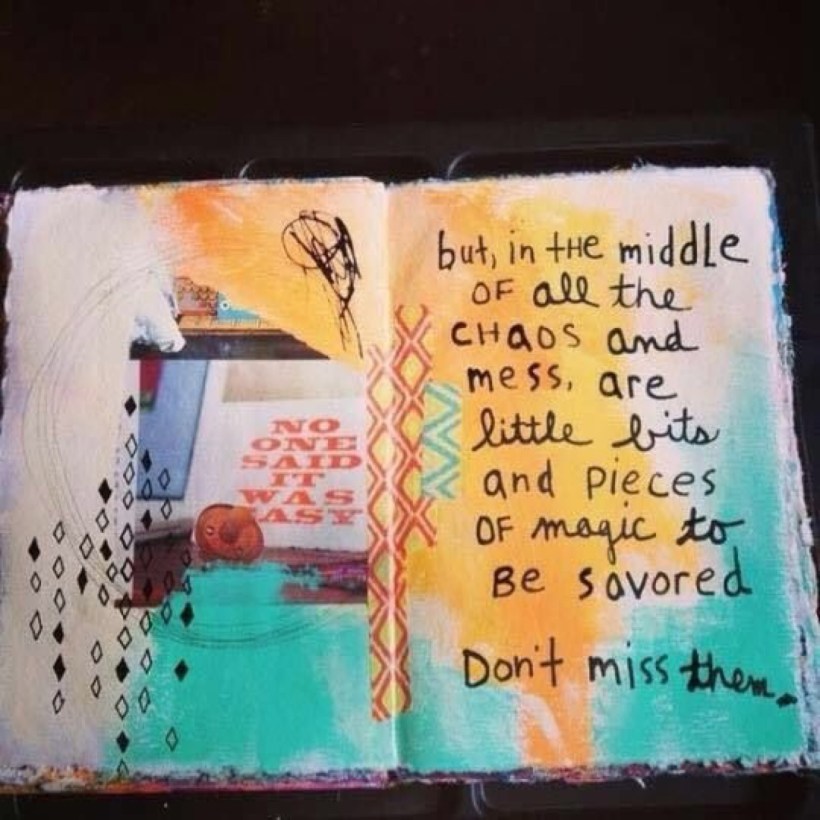 NO
ONE
SAID
IT
WAS
EASY
but, in tHE middLE
OF all the
CHaOS and
mess, are
little bits
and pieces
OF magic to
BE savored
Don't miss them.